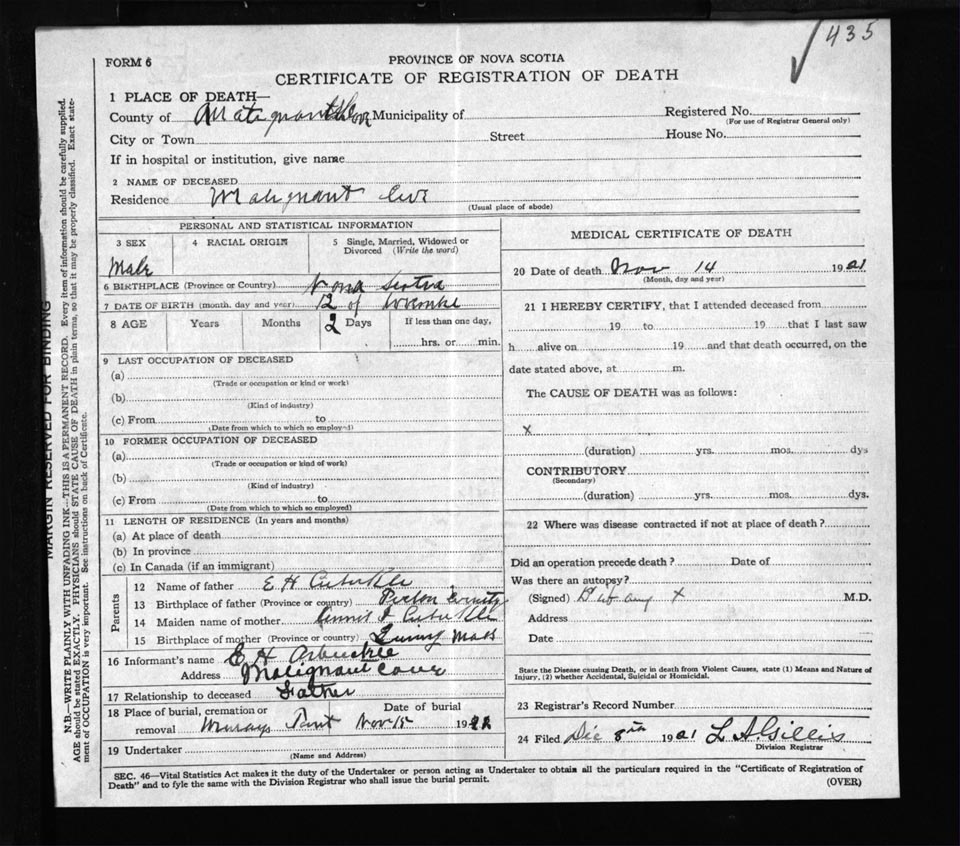 435
FORM 6
PROVINCE OF NOVA SCOTIA
CERTIFICATE OF REGISTRATION OF DEATH
1 PLACE OF DEATH—
County of Municipality of Registered No.
(For use of Registrar General only)
City or Town Street House No.
If in hospital or institution, give name
2 NAME OF DECEASED
Residence Malignant
(Usual place of abode)
PERSONAL AND STATISTICAL INFORMATION
3 SEX 4 RACIAL ORIGIN 5 Single, Married, Widowed or Divorced (Write the word)
Male
6 BIRTHPLACE (Province or Country) Nova Scotia
7 DATE OF BIRTH (month, day and year) 12 of
8 AGE Years Months 2 Days If less than one day,
hrs. or min.
9 LAST OCCUPATION OF DECEASED
(a)
(Trade or occupation or kind or work)
(b)
(Kind of industry)
(c) From to
(Date from which to which so employed)
10 FORMER OCCUPATION OF DECEASED
(a)
(Trade or occupation or kind of work)
(b)
(Kind of industry)
(c) From to
(Date from which to which so employed)
11 LENGTH OF RESIDENCE (In years and months)
(a) At place of death
(b) In province
(c) In Canada (if an immigrant)
Parents
12 Name of father E H
13 Birthplace of father (Province or country) Pictou County
14 Maiden name of mother
15 Birthplace of mother (Province or country) Mass
16 Informant's name E H Arbuckle
Address Malignant Cove
17 Relationship to deceased Father
18 Place of burial, cremation or removal Date of burial
Nov 15 19
19 Undertaker
(Name and Address)
MEDICAL CERTIFICATE OF DEATH
20 Date of death Nov 14 1921
(Month, day and year)
21 I HEREBY CERTIFY, that I attended deceased from
19 to 19 that I last saw
h alive on 19 and that death occurred, on the
date stated above, at m.
The CAUSE OF DEATH was as follows:
x
(duration) yrs. mos. dys
CONTRIBUTORY
(Secondary)
(duration) yrs. mos. dys.
22 Where was disease contracted if not at place of death?
Did an operation precede death? Date of
Was there an autopsy?
(Signed) x M.D.
Address
Date
State the Disease causing Death, or in death from Violent Causes, state (1) Means and Nature of
Injury, (2) whether Accidental, Suicidal or Homicidal.
23 Registrar's Record Number
24 Filed Dec 8th 1921 L A Gillis
Division Registrar
SEC. 46—Vital Statistics Act makes it the duty of the Undertaker or person acting as Undertaker to obtain all the particulars required in the "Certificate of Registration of
Death" and to fyle the same with the Division Registrar who shall issue the burial permit.
(OVER)
MARGIN RESERVED FOR BINDING
N.B.—WRITE PLAINLY WITH UNFADING INK—THIS IS A PERMANENT RECORD. Every item of information should be carefully supplied.
AGE should be stated EXACTLY. PHYSICIANS should STATE CAUSE OF DEATH in plain terms, so that it may be properly classified. Exact state-
ment of OCCUPATION is very important. See instructions on back of Certificate.